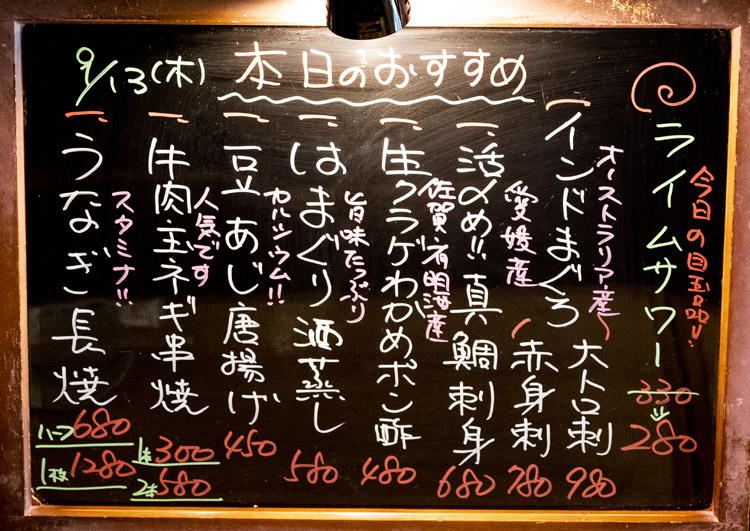 9/13(木) 本日のおすすめ
今日の目玉品!!
ライムサワー
330
280
一、インドまぐろ
オーストラリア産
大トロ刺 980
赤身刺 780
一、活〆め!!真鯛刺身 680
愛媛産
一、生クラゲわかめポン酢 480
佐賀、有明海産
一、はまぐり酒蒸し 580
旨味たっぷり
一、豆あじ唐揚げ 450
カルシウム!!
一、牛肉玉ネギ串焼
人気です
1本 300
2本 580
一、うなぎ長焼
スタミナ!!
ハーフ 680
1枚 1280